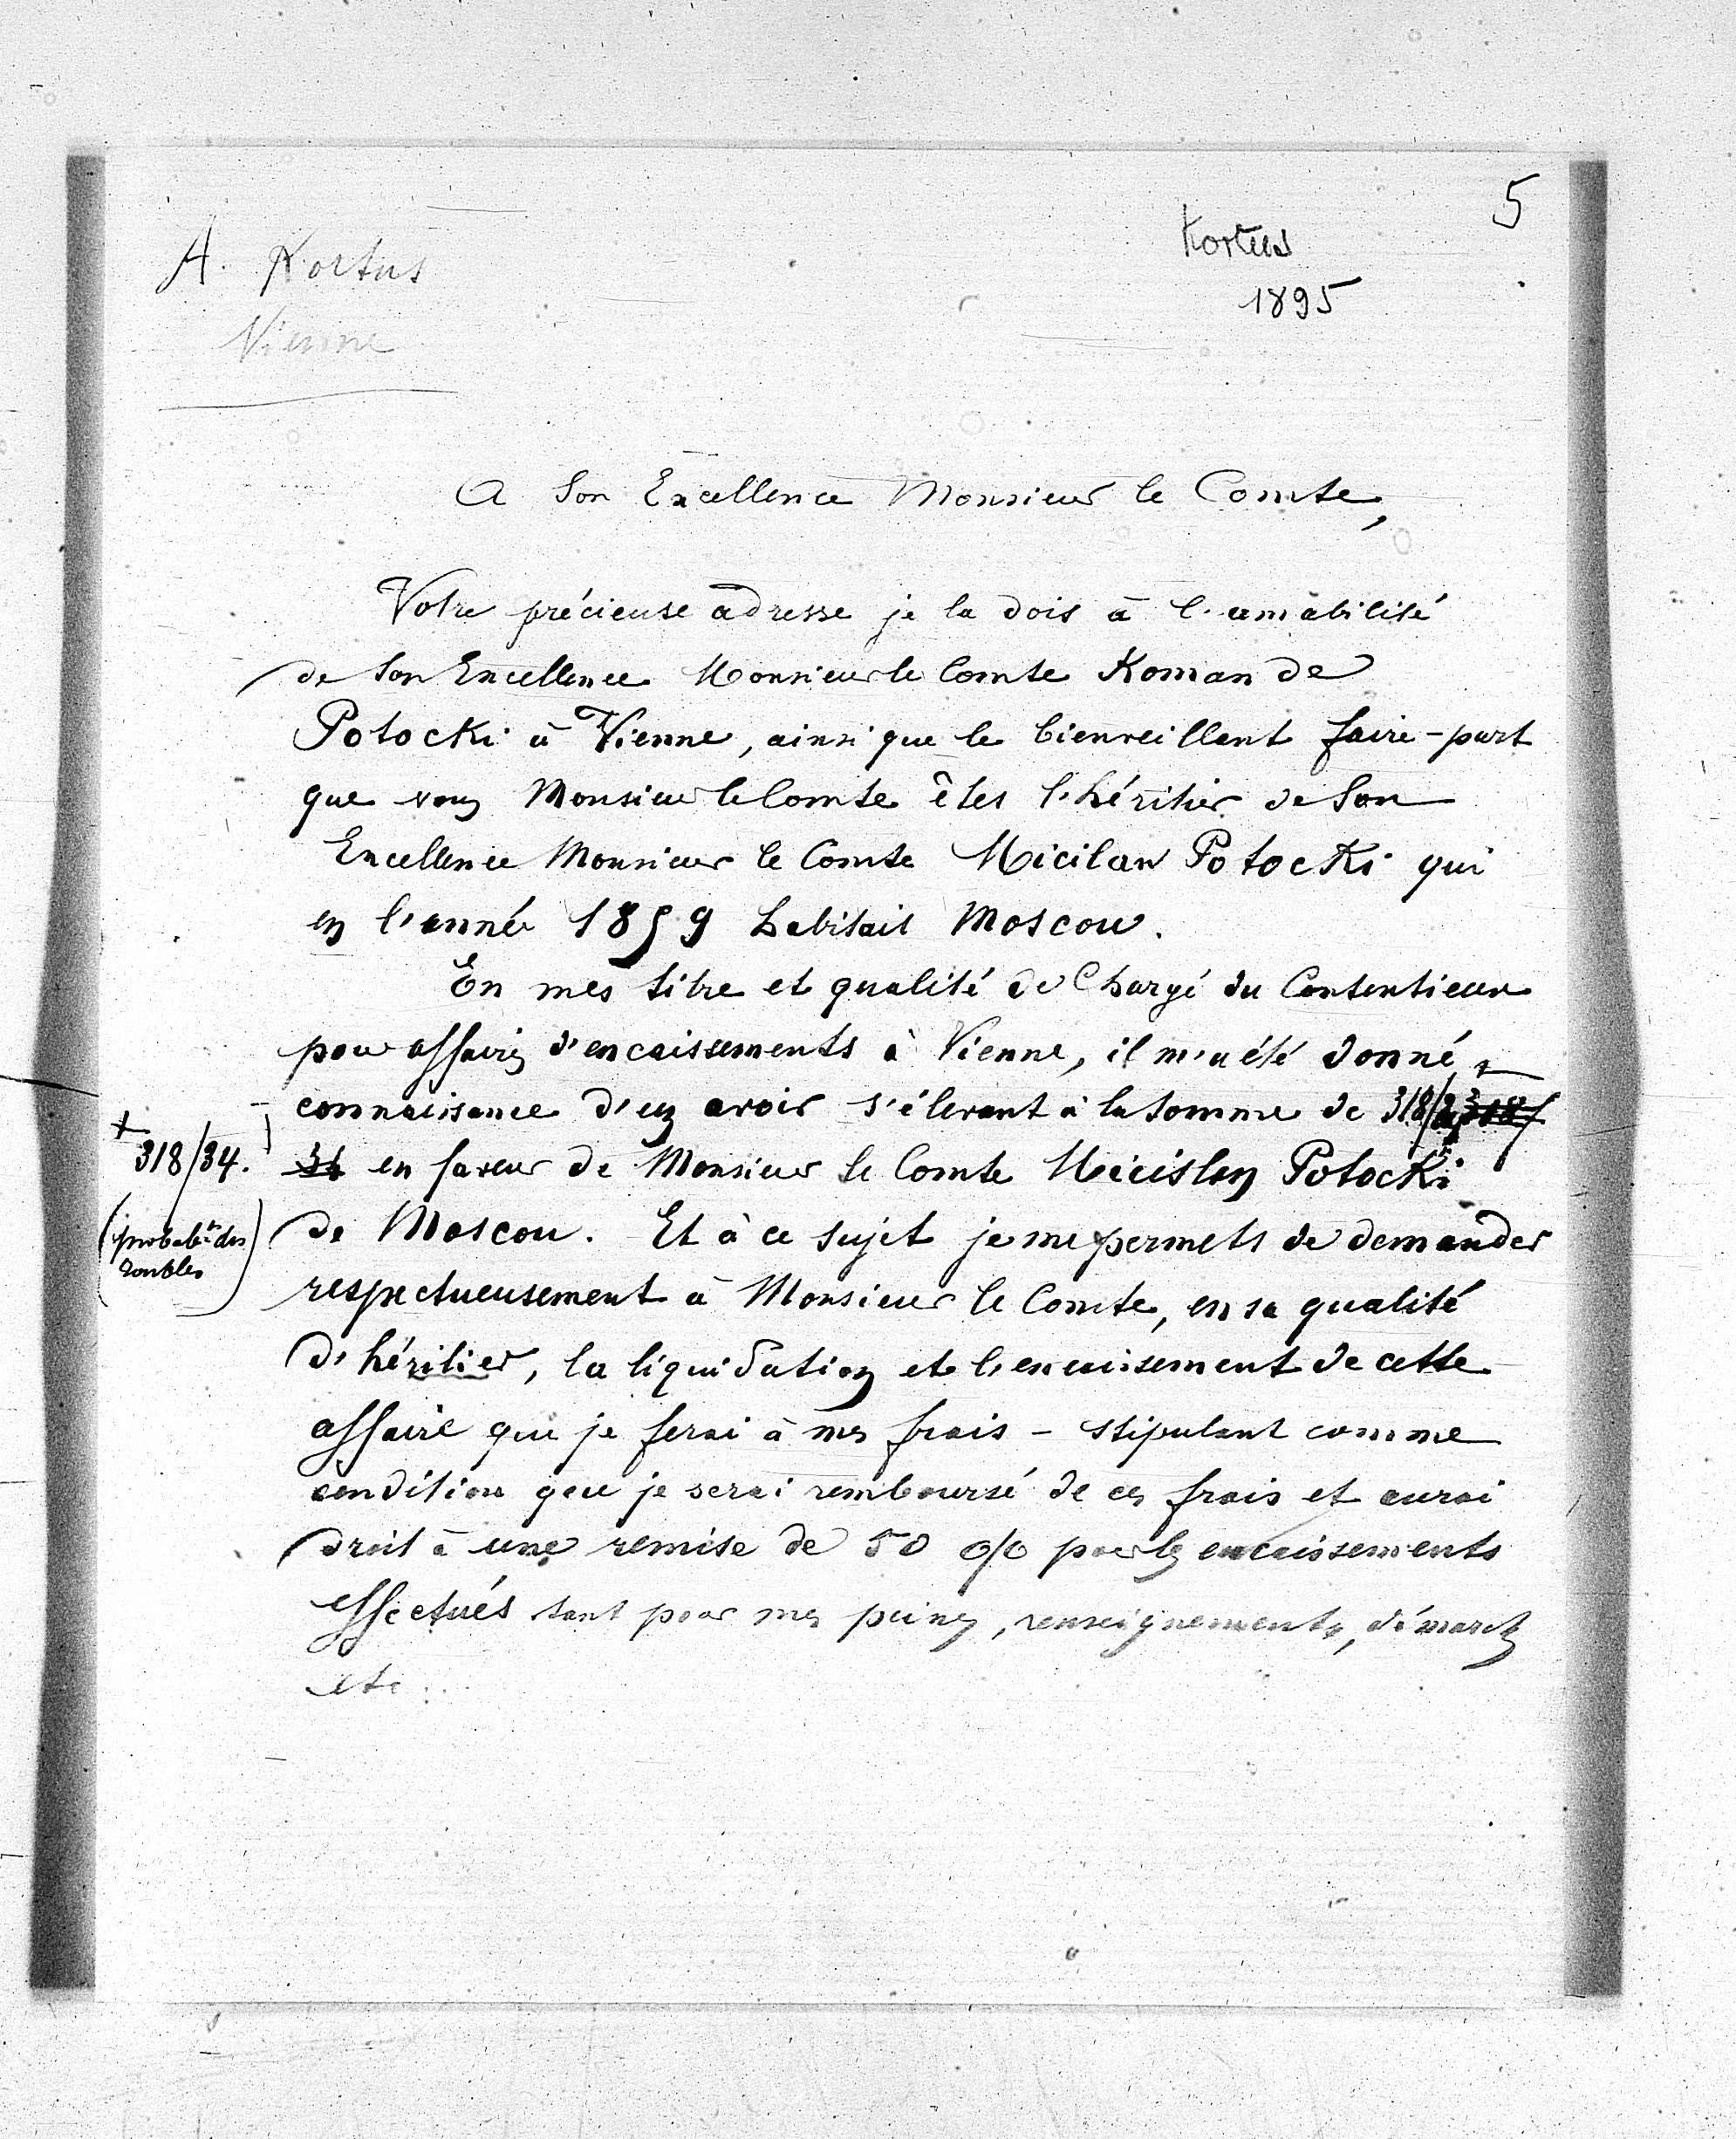 5
Kortus
1895
A. Kortus
Vienne
A Son Excellence Monsieur le Comte,
Votre précieuse adresse je la dois à l'amabilité
de Son Excellence Monsieur le Comte Roman de
Potocki à Vienne, ainsi que le bienveillant faire-part
que vous Monsieur le Comte êtes l'héritier de Son
Excellence Monsieur le Comte Micilaw Potocki qui
en l'année 1859 habitait Moscou.
En mes titre et qualité de Chargé du Contentieux
pour affaires d'encaissements à Vienne, il m'a été donné
connaissance d'un avoir s'élevant à la somme de 318/
34 en faveur de Monsieur le Comte Micislas Potocki
+
318/34.
(probabt des
roubles)
de Moscou. Et à ce sujet je me permets de demander
respectueusement à Monsieur le Comte, en sa qualité
d'héritier, la liquidation et l'encaissement de cette
affaire que je ferai à mes frais - stipulant comme
condition que je serai remboursé de ces frais et aurai
droit à une remise de 50 o/o pour les encaissements
effectués tant pour mes peines, renseignements, démarches
etc...